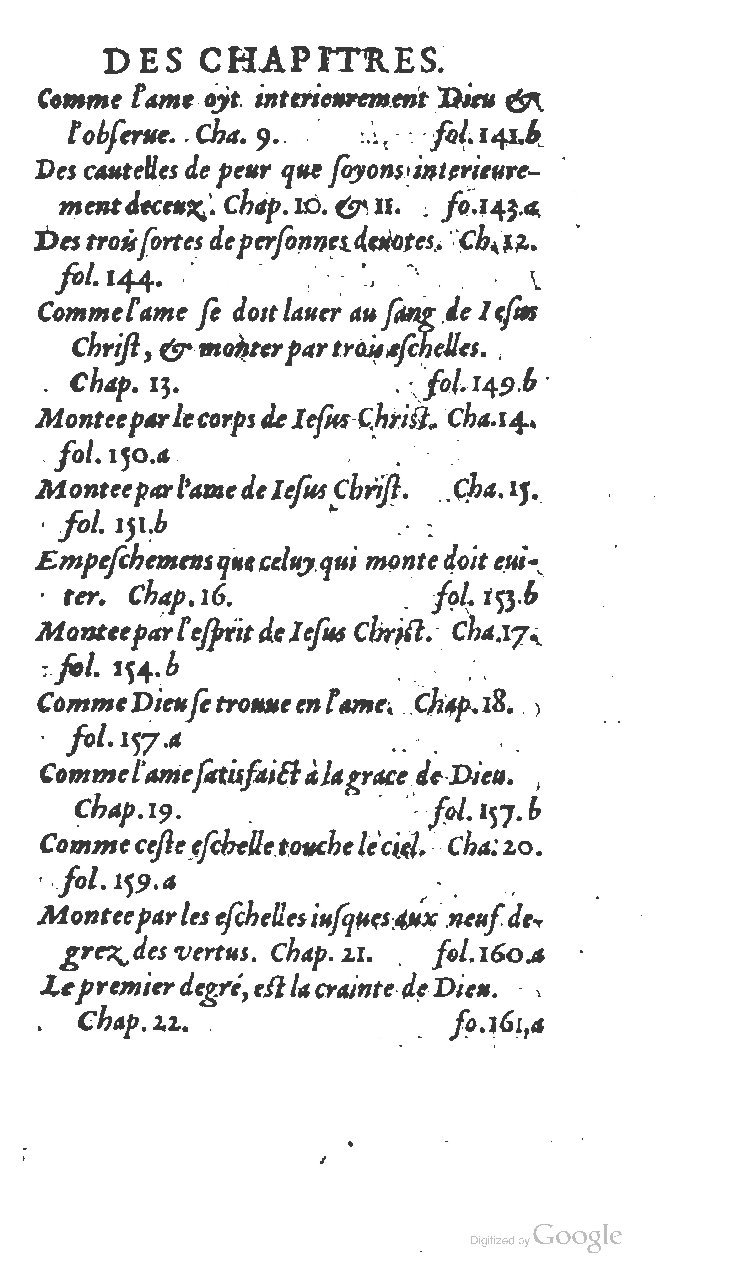 DES CHAPITRES.
Comme l'ame oyt interieurement Dieu &
l'obſerue. Cha. 9. fol. 141.b
Des cautelles de peur que ſoyons interieure-
ment deceuz. Chap. 10. & 11. fo.143.a
Des trois ſortes de perſonnes deuotes. Ch. 12.
fol. 144.
Comme l'ame ſe doit lauer au ſang de Ieſus
Chriſt, & monter par trois eſchelles.
Chap. 13. fol. 149.b
Montee par le corps de Ieſus Chriſt. Cha. 14.
fol. 150.a
Montee par l'ame de Ieſus Chriſt. Cha. 15.
fol. 151.b
Empeſchemens que celuy qui monte doit eui-
ter. Chap. 16. fol. 153.b
Montee par l'eſprit de Ieſus Chriſt. Cha.17.
fol. 154.b
Comme Dieu ſe trouue en l'ame. Chap. 18.
fol. 157.a
Comme l'ame ſatisfaict à la grace de Dieu.
Chap. 19. fol. 157.b
Comme ceſte eſchelle touche le ciel. Cha. 20.
fol. 159.a
Montee par les eſchelles iuſques aux neuf de-
grez des vertus. Chap. 21. fol. 160.a
Le premier degré, eſt la crainte de Dieu.
Chap. 22. fo.161,a
Digitized by Google